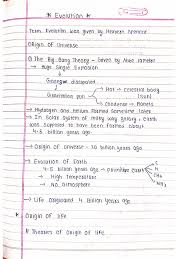 * Evolution *
Term Evolution was given by Herbert Spencer
Origin of Universe
The Big Bang Theory - Given by Abbe Lemaitre
→ Huge Single Explosion
Gaseous dissipated
Generation gas → Hot → celestial body
(Sun)
→ Condense → Planets
→ Hydrogen and Helium formed Galaxies later
→ In Solar System of milky way galaxy, Earth
was supposed to have been formed about
4.5 billion years ago
→ Origin of Universe - 20 billion years ago
→ Evolution of Earth
4.5 billion years ago → Primitive Earth
→ High Temperature
→ No atmosphere
C
H
CH4
NH3
→ Life appeared 4 billion years ago
* Origin of life
# Theories of Origin of life